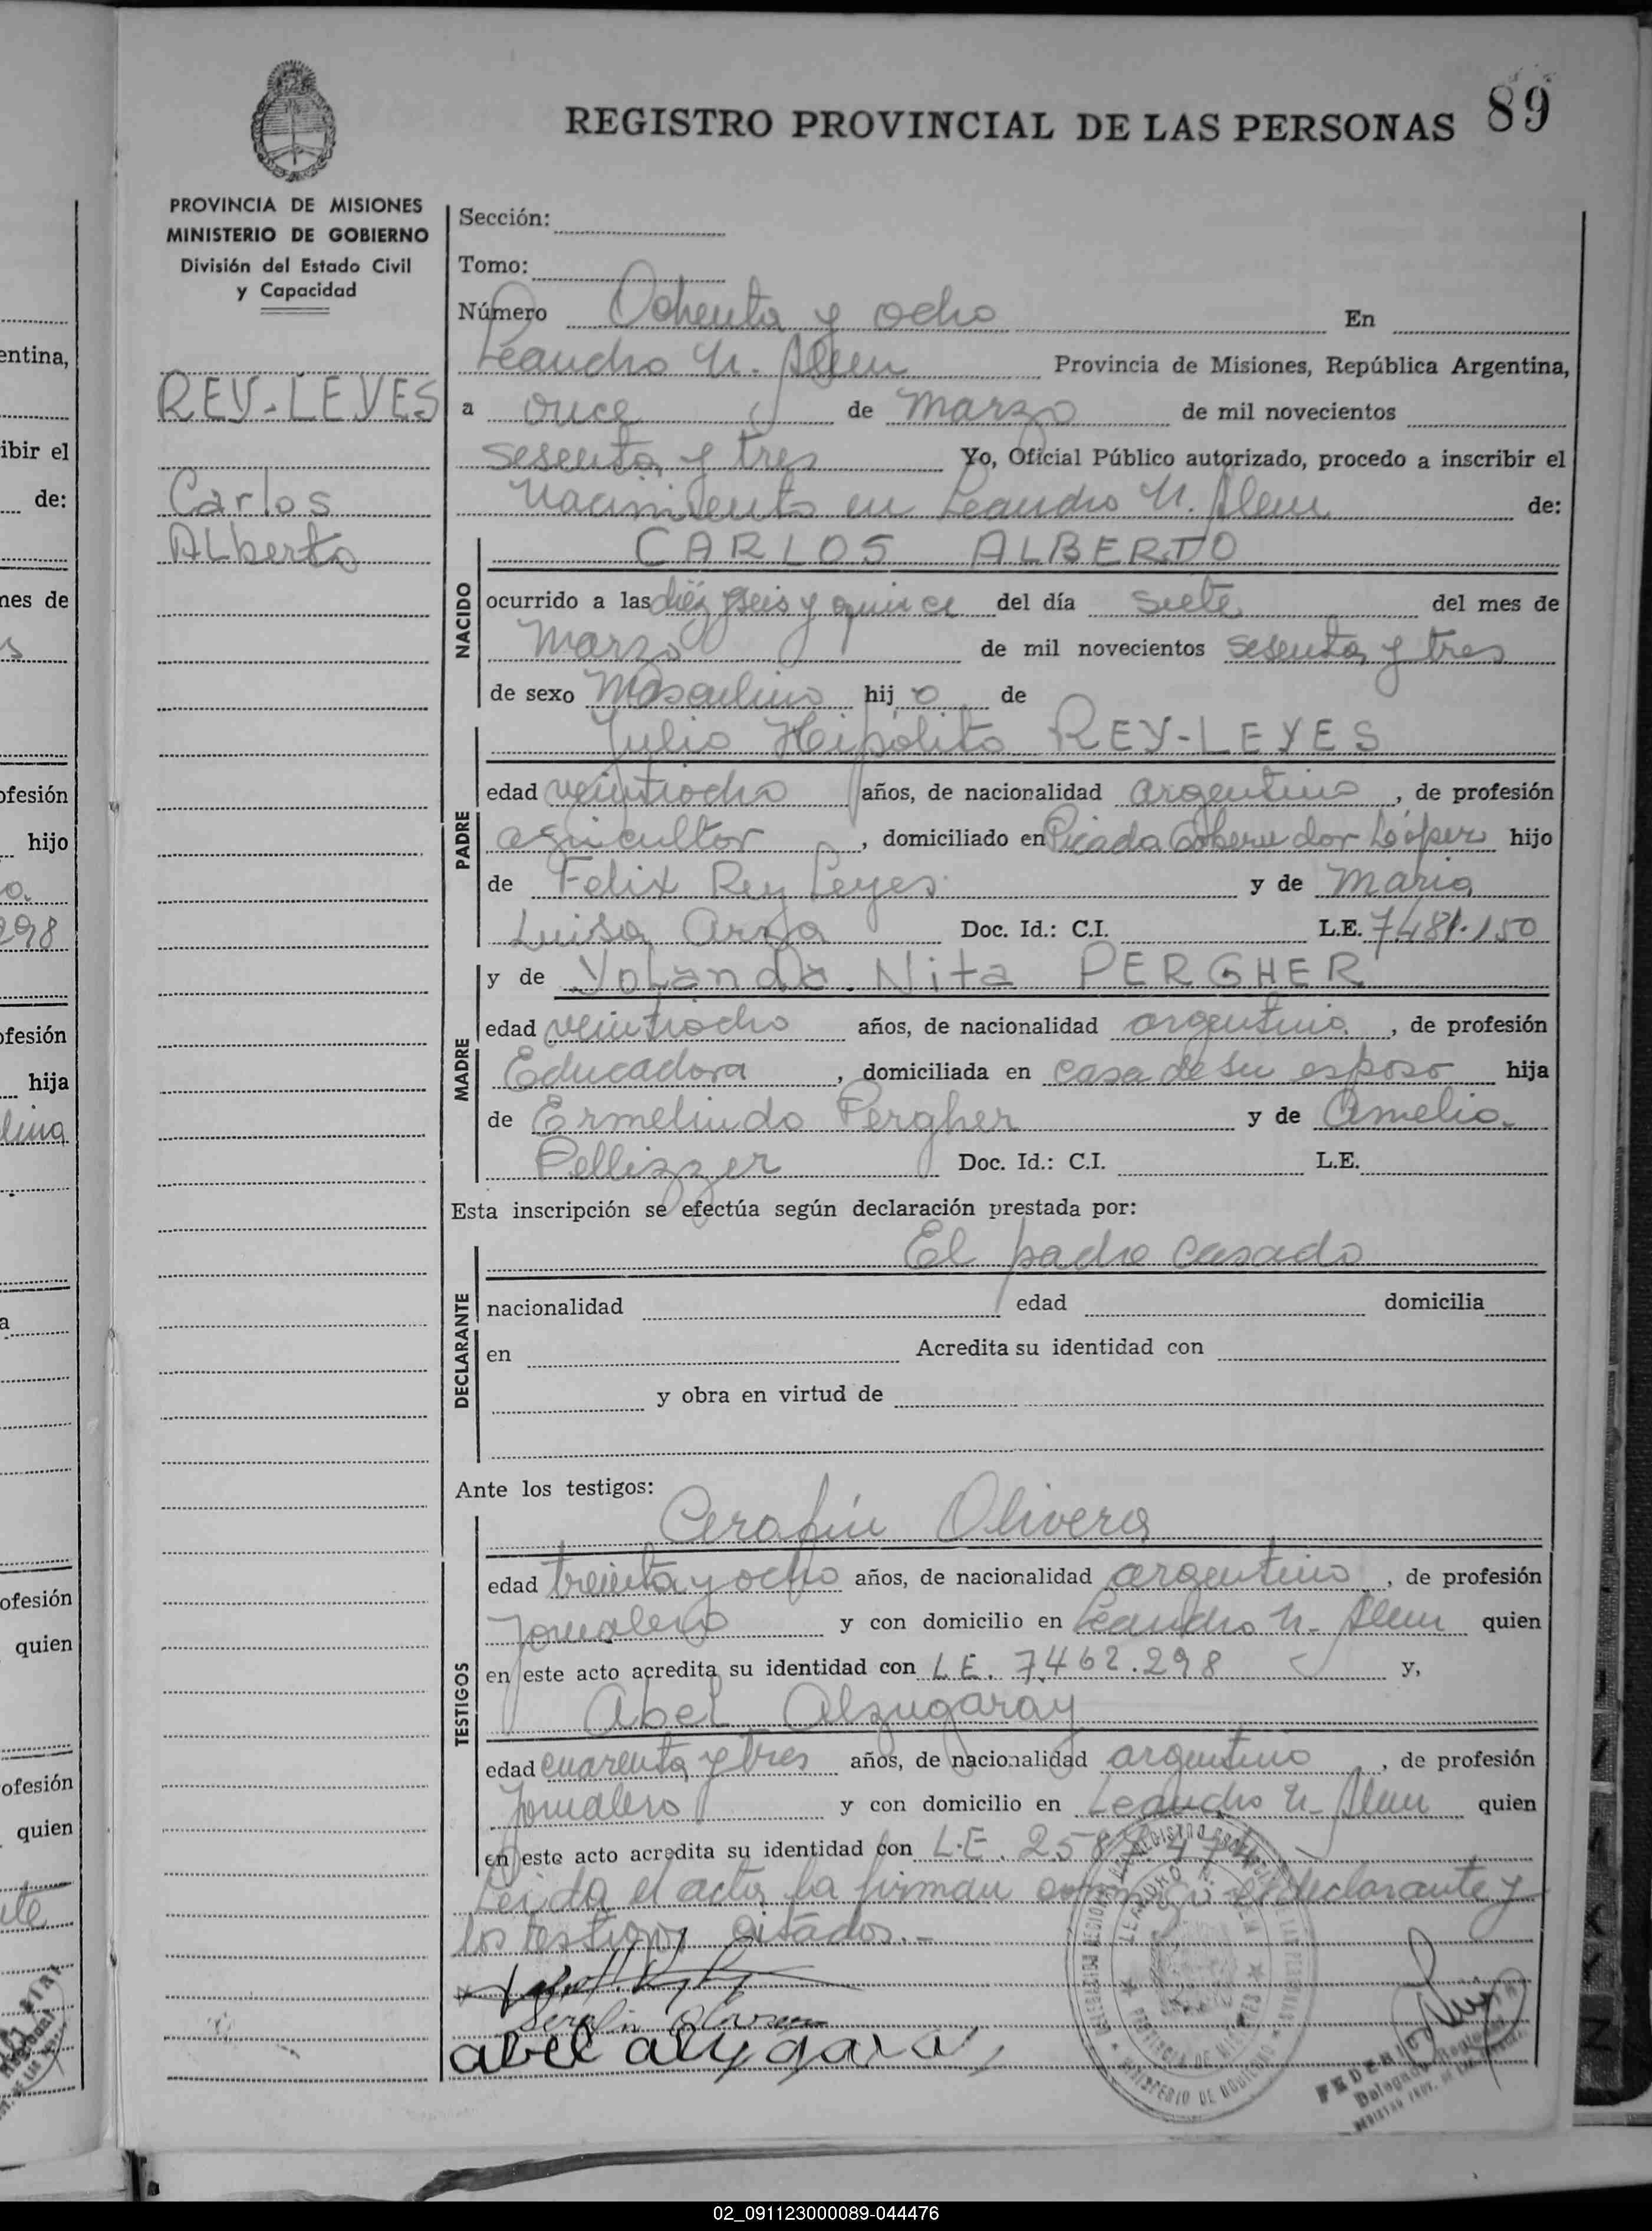 REGISTRO PROVINCIAL DE LAS PERSONAS 89
PROVINCIA DE MISIONES
MINISTERIO DE GOBIERNO
División del Estado Civil
y Capacidad
REY-LEYES
Carlos
ALberto
Sección:
Tomo:
Número Ochenta y ocho En
Leandro N. Alem Provincia de Misiones, República Argentina,
a once de marzo de mil novecientos
sesenta y tres Yo, Oficial Público autorizado, procedo a inscribir el
nacimiento en Leandro N. Alem de:
CARLOS ALBERTO
NACIDO
ocurrido a las diez y seis y quince del día siete del mes de
marzo de mil novecientos sesenta y tres
de sexo Masculino hijo de
Julio Hipólito REY-LEYES
PADRE
edad veintiocho años, de nacionalidad argentino, de profesión
agricultor, domiciliado en Picada Gobernador López hijo
de Felix Rey Leyes y de Maria
Luisa Arza Doc. Id.: C.I. L.E. 7.481.150
y de Yolanda Nita PERGHER
MADRE
edad veintiocho años, de nacionalidad argentina, de profesión
Educadora, domiciliada en casa de su esposo hija
de Ermelindo Pergher y de Amelia
Pellizzer Doc. Id.: C.I. L.E.
Esta inscripción se efectúa según declaración prestada por:
El padre casado
DECLARANTE
nacionalidad edad domicilia
en Acredita su identidad con
y obra en virtud de
Ante los testigos:
Cerafín Olivera
TESTIGOS
edad treinta y ocho años, de nacionalidad argentino, de profesión
Jornalero y con domicilio en Leandro N. Alem quien
en este acto acredita su identidad con L.E. 7.462.298 y,
Abel Alzugaray
edad cuarenta y tres años, de nacionalidad argentino, de profesión
Jornalero y con domicilio en Leandro N. Alem quien
en este acto acredita su identidad con L.E. 2.587.
Leida el acta la firman declarante y
los testigos citados.-
abel
FEDERICO
02_091123000089-044476